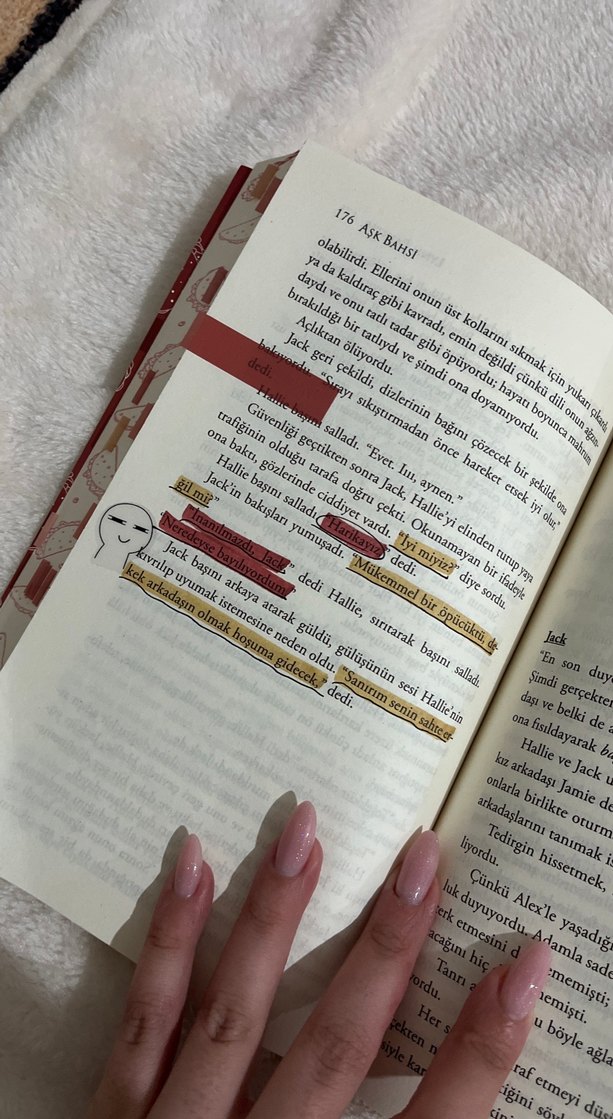 176 AŞK BAHSİ
olabilirdi. Ellerini onun üst kollarını sıkmak için yukarı çıkardı
ya da kaldıraç gibi kavradı, emin değildi çünkü dili onun ağzın-
daydı ve onu tatlı tadar gibi öpüyordu; hayatı boyunca mahrum
bırakıldığı bir tatlıydı ve şimdi ona doyamıyordu.
Açlıktan ölüyordu.
Jack geri çekildi, dizlerinin bağını çözecek bir şekilde ona
bakıyordu. "Sırayı sıkıştırmadan önce hareket etsek iyi olur,"
dedi.
Hallie başını salladı. "Evet. Iıı, aynen."
Güvenliği geçtikten sonra Jack, Hallie'yi elinden tutup yaya
trafiğinin olduğu tarafa doğru çekti. Okunamayan bir ifadeyle
ona baktı, gözlerinde ciddiyet vardı. "İyi miyiz?" diye sordu.
Hallie başını salladı. "Harikayız" dedi.
Jack'in bakışları yumuşadı. "Mükemmel bir öpücüktü, de-
ğil mi?"
"İnanılmazdı, Jack" dedi Hallie, sırıtarak başını salladı.
"Neredeyse bayılıyordum."
Jack başını arkaya atarak güldü, gülüşünün sesi Hallie'nin
kıvrılıp uyumak istemesine neden oldu. "Sanırım senin sahte er-
kek arkadaşın olmak hoşuma gidecek," dedi.
Jack
"En son duy
Şimdi gerçekten
daşı ve belki de a
ona fısıldayarak ba
Hallie ve Jack u
kız arkadaşı Jamie de
onlarla birlikte oturm
arkadaşlarını tanımak is
Tedirgin hissetmek,
liyordu.
Çünkü Alex'le yaşadığı
luk duyuyordu. Adamla sade
erk etmesini d ememişti;
acağını hiç
Tanrı a nemişti.
yordu. u böyle ağla
Her s
çekten n raf etmeyi dü
siyle kar ciğini söy